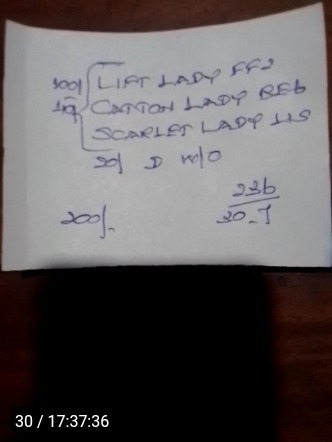 100/ LIFT LADY FF2
CATTON LADY REB
SCARLET LADY LIS
20/ D W/O
236
200/- 30-7
30 / 17:37:36